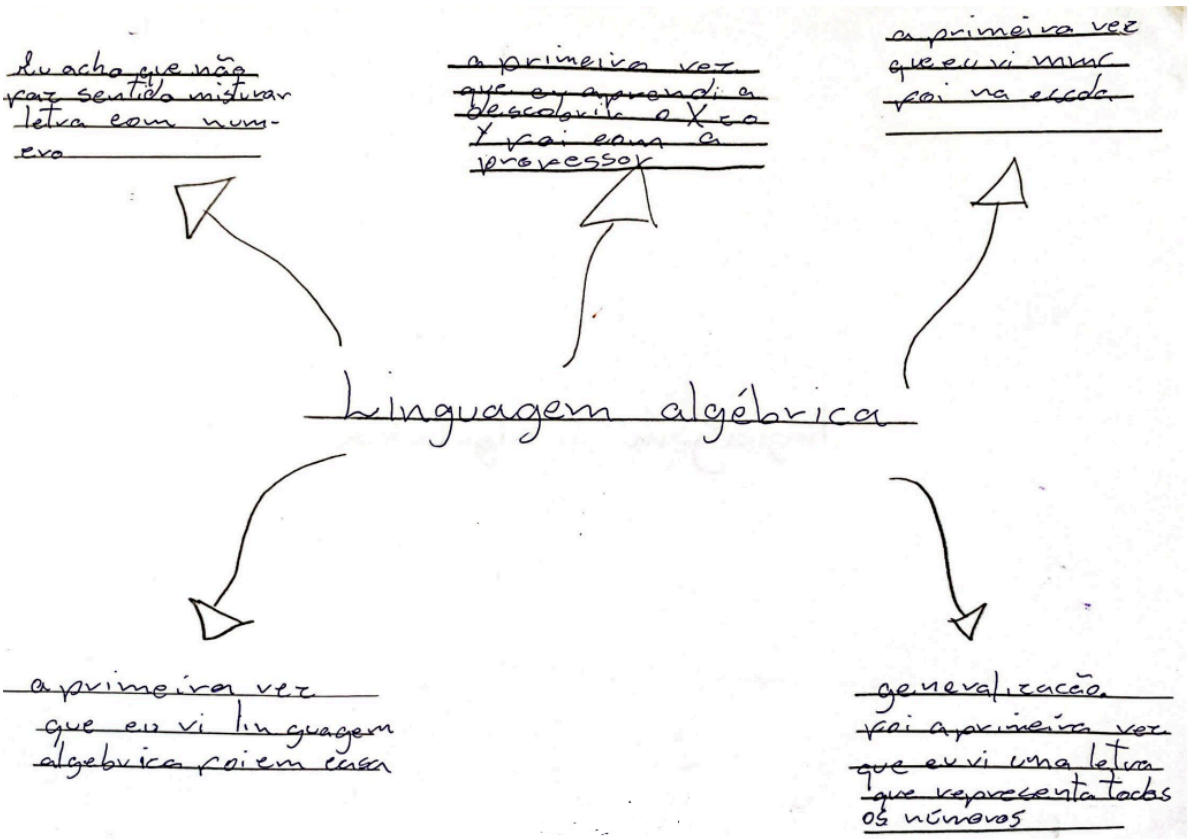 Eu acho que não
faz sentido misturar
letra com num-
ero
a primeira vez
que eu aprendi a
descobrir o X e o
Y foi com a
professor
a primeira vez
que eu vi mmc
foi na escola
Linguagem algébrica
a primeira vez
que eu vi linguagem
algebrica foi em casa
generalização
foi a primeira vez
que eu vi uma letra
que representa todos
os números